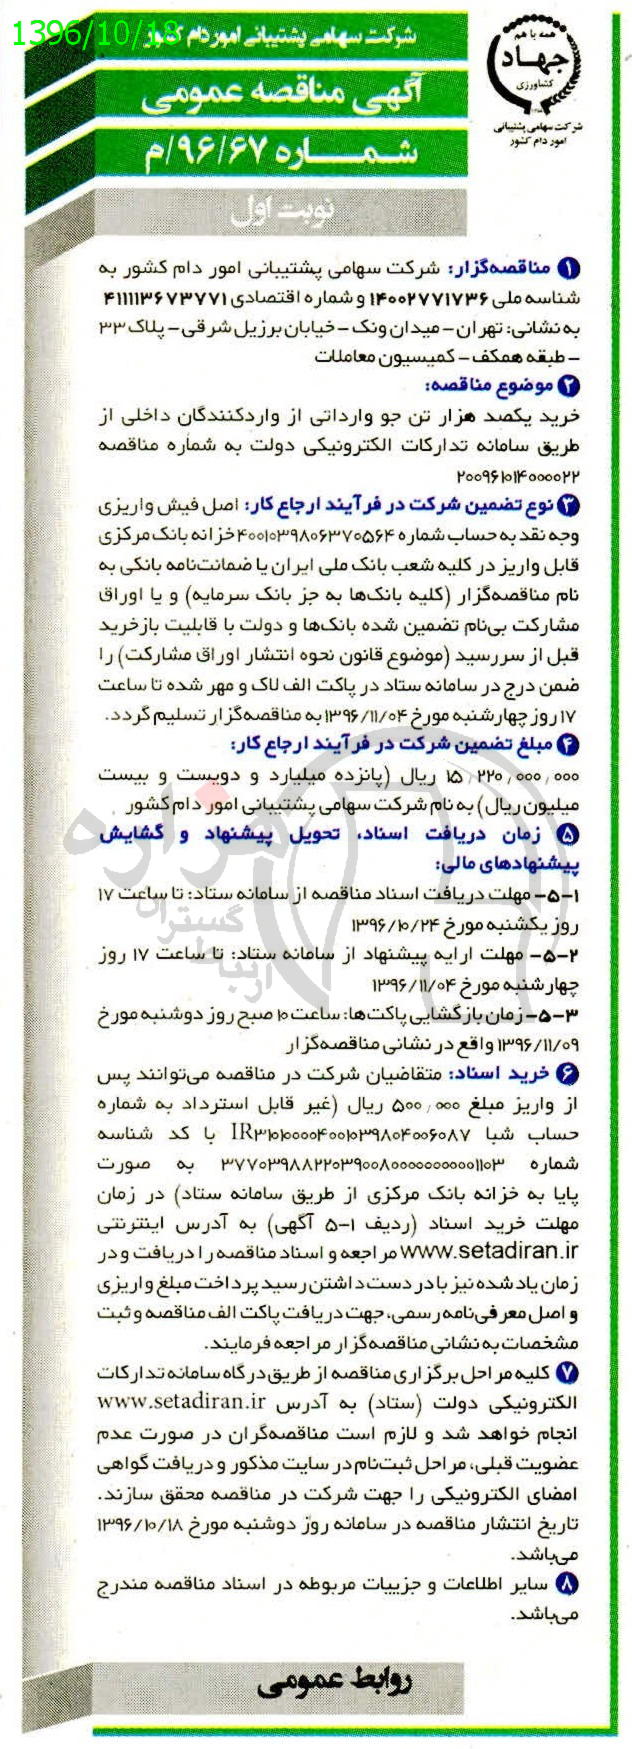 1396/10/18
همه با هم
جهاد
کشاورزی
شرکت سهامی پشتیبانی
امور دام کشور
شرکت سهامی پشتیبانی امور دام کشور
آگهی مناقصه عمومی
شمـــــــاره ۹۶/۶۷/م
نوبت اول
۱ مناقصه‌گزار: شرکت سهامی پشتیبانی امور دام کشور به
شناسه ملی ۱۴۰۰۲۷۷۱۷۳۶ و شماره اقتصادی ۴۱۱۱۱۳۶۷۳۷۷۱
به نشانی: تهران - میدان ونک - خیابان برزیل شرقی - پلاک ۳۳
- طبقه همکف - کمیسیون معاملات
۲ موضوع مناقصه:
خرید یکصد هزار تن جو وارداتی از واردکنندگان داخلی از
طریق سامانه تدارکات الکترونیکی دولت به شماره مناقصه
۲۰۰۹۶۱۰۱۴۰۰۰۰۲۲
۳ نوع تضمین شرکت در فرآیند ارجاع کار: اصل فیش واریزی
وجه نقد به حساب شماره ۴۰۰۱۰۳۹۸۰۶۳۷۰۵۶۴ خزانه بانک مرکزی
قابل واریز در کلیه شعب بانک ملی ایران یا ضمانت‌نامه بانکی به
نام مناقصه‌گزار (کلیه بانک‌ها به جز بانک سرمایه) و یا اوراق
مشارکت بی‌نام تضمین شده بانک‌ها و دولت با قابلیت بازخرید
قبل از سررسید (موضوع قانون نحوه انتشار اوراق مشارکت) را
ضمن درج در سامانه ستاد در پاکت الف لاک و مهر شده تا ساعت
۱۷ روز چهارشنبه مورخ ۱۳۹۶/۱۱/۰۴ به مناقصه‌گزار تسلیم گردد.
۴ مبلغ تضمین شرکت در فرآیند ارجاع کار:
۱۵,۲۲۰,۰۰۰,۰۰۰ ریال (پانزده میلیارد و دویست و بیست
میلیون ریال) به نام شرکت سهامی پشتیبانی امور دام کشور
۵ زمان دریافت اسناد، تحویل پیشنهاد و گشایش
پیشنهادهای مالی:
۵-۱- مهلت دریافت اسناد مناقصه از سامانه ستاد: تا ساعت ۱۷
روز یکشنبه مورخ ۱۳۹۶/۱۰/۲۴
۵-۲- مهلت ارایه پیشنهاد از سامانه ستاد: تا ساعت ۱۷ روز
چهارشنبه مورخ ۱۳۹۶/۱۱/۰۴
۵-۳- زمان بازگشایی پاکت‌ها: ساعت ۱۰ صبح روز دوشنبه مورخ
۱۳۹۶/۱۱/۰۹ واقع در نشانی مناقصه‌گزار
۶ خرید اسناد: متقاضیان شرکت در مناقصه می‌توانند پس
از واریز مبلغ ۵۰۰,۰۰۰ ریال (غیر قابل استرداد به شماره
حساب شبا IR۳۱۰۱۰۰۰۰۴۰۰۱۰۳۹۸۰۴۰۰۶۰۸۷ با کد شناسه
شماره ۳۷۷۰۳۹۸۸۲۲۰۳۹۰۰۸۰۰۰۰۰۰۰۰۰۰۰۱۱۰۳ به صورت
پایا به خزانه بانک مرکزی از طریق سامانه ستاد) در زمان
مهلت خرید اسناد (ردیف ۱-۵ آگهی) به آدرس اینترنتی
www.setadiran.ir مراجعه و اسناد مناقصه را دریافت و در
زمان یاد شده نیز با در دست داشتن رسید پرداخت مبلغ واریزی
و اصل معرفی‌نامه رسمی، جهت دریافت پاکت الف مناقصه و ثبت
مشخصات به نشانی مناقصه‌گزار مراجعه فرمایند.
۷ کلیه مراحل برگزاری مناقصه از طریق درگاه سامانه تدارکات
الکترونیکی دولت (ستاد) به آدرس www.setadiran.ir
انجام خواهد شد و لازم است مناقصه‌گران در صورت عدم
عضویت قبلی، مراحل ثبت‌نام در سایت مذکور و دریافت گواهی
امضای الکترونیکی را جهت شرکت در مناقصه محقق سازند.
تاریخ انتشار مناقصه در سامانه روز دوشنبه مورخ ۱۳۹۶/۱۰/۱۸
می‌باشد.
۸ سایر اطلاعات و جزییات مربوطه در اسناد مناقصه مندرج
می‌باشد.
روابط عمومی
هزاره
گستران
ارتباط